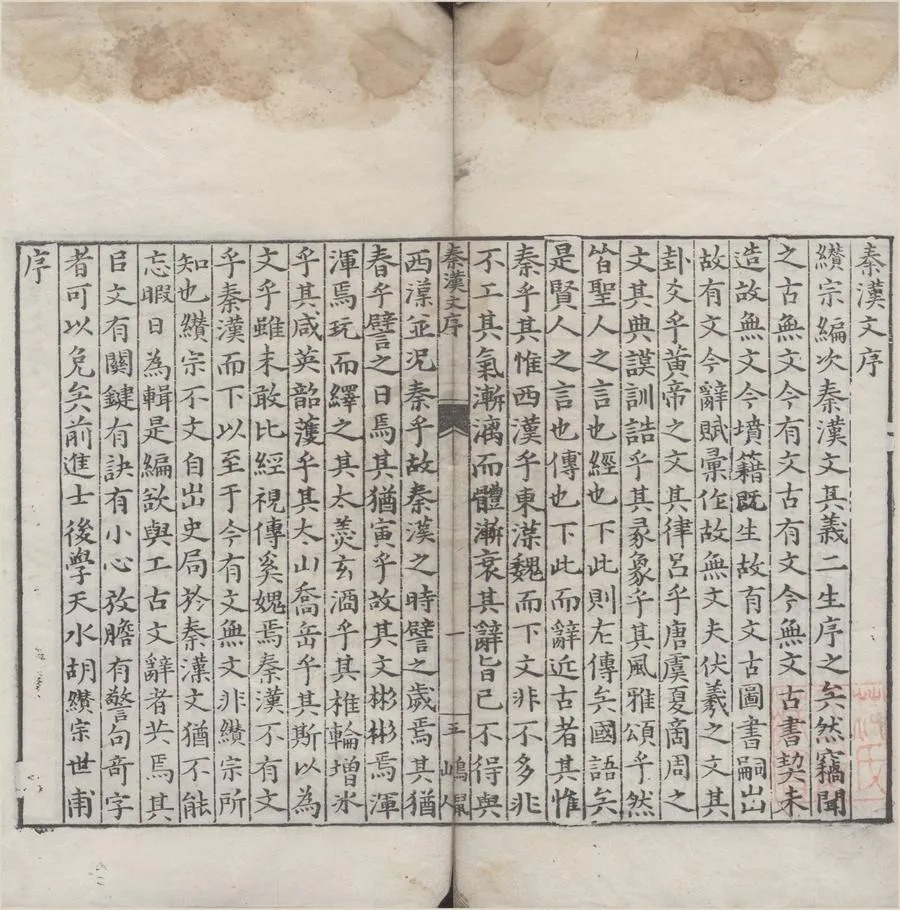 秦漢文序
纘宗編次秦漢文其義二生序之矣然竊聞
之古無文今有文古有文今無文古書契未
造故無文今墳籍既生故有文古圖書嗣出
故有文今辭賦彙作故無文夫伏羲之文其
卦爻乎黃帝之文其律呂乎唐虞夏商周之
文其典謨訓誥乎其彖象乎其風雅頌乎然
皆聖人之言也經也下此則左傳矣國語矣
是賢人之言也傳也下此而辭近古者其惟
秦乎其惟西漢乎東漢魏而下文非不多非
不工其氣漸漓而體漸衰其辭旨已不得與
秦漢文序
一
五
西漢並况秦乎故秦漢之時譬之歲焉其猶
春乎譬之日焉其猶寅乎故其文彬彬焉渾
渾焉玩而繹之其太羹玄酒乎其椎輪增冰
乎其咸英韶濩乎其太山喬岳乎其斯以為
文乎雖未敢比經視傳奚媿焉秦漢不有文
乎秦漢而下以至于今有文無文非纘宗所
知也纘宗不文自出史局於秦漢文猶不能
忘暇日為輯是編欲與工古文辭者共焉其
曰文有關鍵有訣有小心放膽有警句奇字
者可以免矣前進士後學天水胡纘宗世甫
序